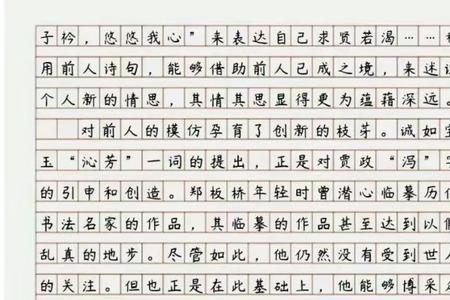 子衿，悠悠我心”来表达自己求贤若渴……
用前人诗句，能够借助前人已成之境，来述
个人新的情思，其情其思显得更为蕴藉深远。
对前人的模仿孕育了创新的枝芽。诚如宝
玉“沁芳”一词的提出，正是对贾政“泻”字
的引申和创造。郑板桥年轻时曾潜心临摹历
书法名家的作品，其临摹的作品甚至达到以
乱真的地步。尽管如此，他仍然没有受到世人
的关注。但也正是在此基础上，他能够博采